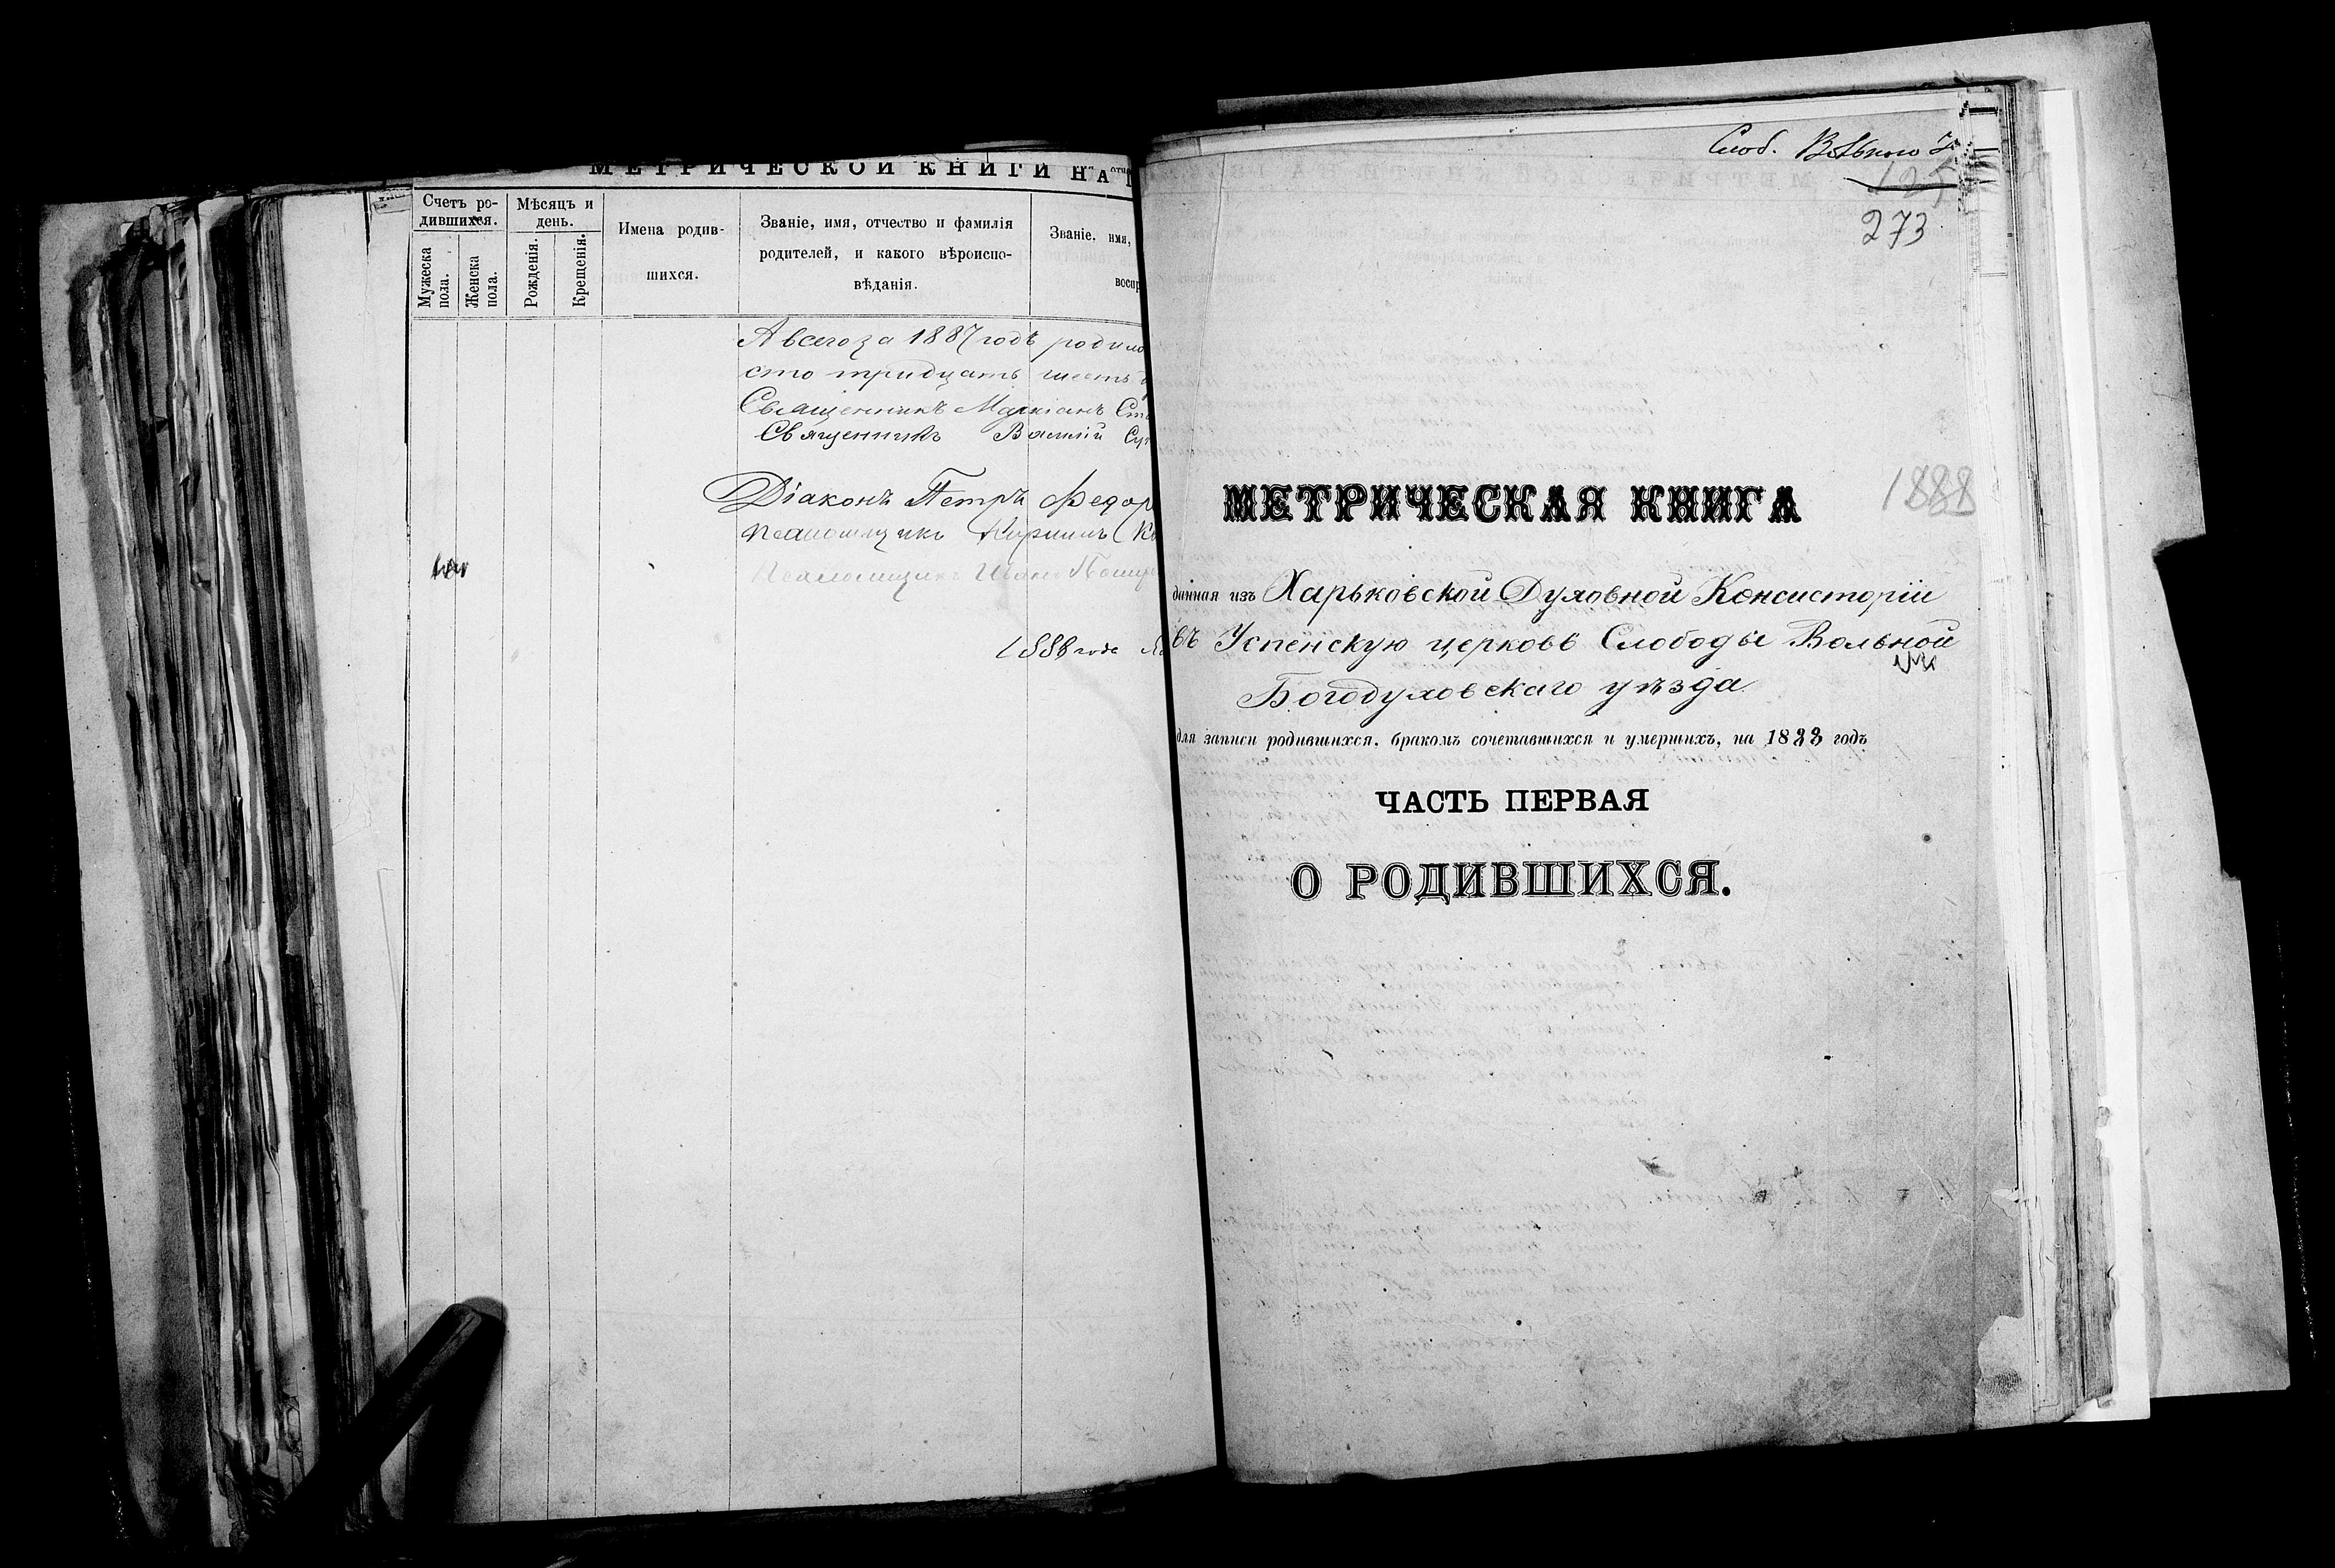 МЕТРИЧЕСКОЙ КНИГИ НА
Счетъ ро-
дившихся.
Мужеска
пола.
Женска
пола.
Мѣсяцъ и
день.
Рожденія.
Крещенія.
Имена родив-
шихся.
Званіе, имя, отчество и фамилія
родителей, и какого вѣроиспо-
вѣданія.
Званіе, имя,
воспр
А всего за 1887 годъ родило
сто тридцать шесть
Священникъ Маркіанъ Ст
Священникъ Василій Су
Діаконъ Петръ Федор
Псаломщикъ Кириллъ
Псаломщикъ Иванъ
1888 года
Слоб. Вольного
125
273
МЕТРИЧЕСКАЯ КНИГА
1888
данная изъ Харьковской Духовной Консисторіи
въ Успенскую церковь Слободы Вольной
Богодуховскаго уѣзда
для записи родившихся, бракомъ сочетавшихся и умершихъ, на 1888 годъ
ЧАСТЬ ПЕРВАЯ
О РОДИВШИХСЯ.